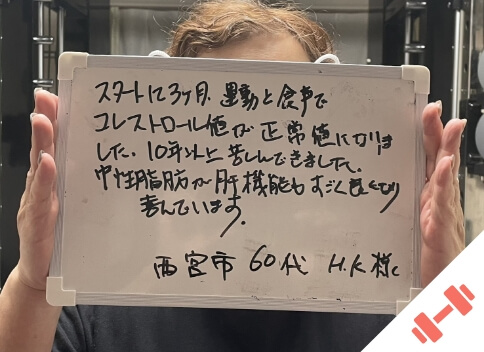 スタートに3ヶ月.運動と食事で
コレストロール値が正常値になりま
した.10年以上苦しんできました.
中性脂肪が肝機能もすごく良くなり
喜んでいます.
西宮市 60代 H.K様